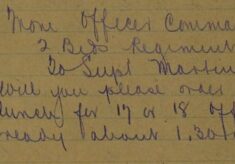 From Officer Comma
2 Beds Regiment
To Supt Martin
Will you please order
lunch for 17 or 18 Off
ready about 1.30